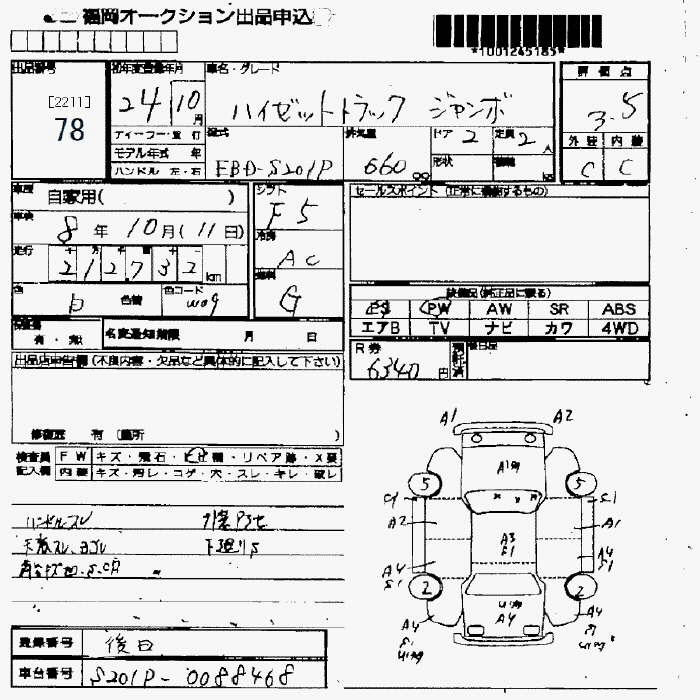 福岡オークション出品申込
*1001245185*
出品番号
[2211]
78
初年度登録年月
24 10 月
車名・グレード
ハイゼットトラック ジャンボ
評価点
3.5
ディーラー・並行
モデル年式 年
ハンドル 左・右
型式
EBD-S201P
排気量
660 cc
ドア 2
定員 2 人
形状
外装 内装
C C
車歴
自家用( )
車検
8 年 10 月 (11 日)
走行
2 1 2 7 3 2 km
シフト
F5
冷房
AC
燃料
G
セールスポイント (正常に機能するもの)
色
白 色替
色コード
W09
装備品(純正品に限る)
PS PW AW SR ABS
エアB TV ナビ カワ 4WD
有・無
名変通知期限 月 日
R券
6340 円
預託済
後日品
出品店申告欄 (不良内容・欠品など具体的に記入して下さい)
修復歴 有 (箇所 )
検査員 FW キズ・飛石・ヒビ・補・リペア跡・X要
記入欄 内装 キズ・汚レ・コゲ・穴・スレ・キレ・破レ
ハンドルスレ
天張スレ、ヨゴレ
下廻りS
A1 A2
5 5
A2 A1
A3
S1
A4 A4
S1 S1
2 2
A4
A4 A4
登録番号 後日
車台番号 S201P-0088468